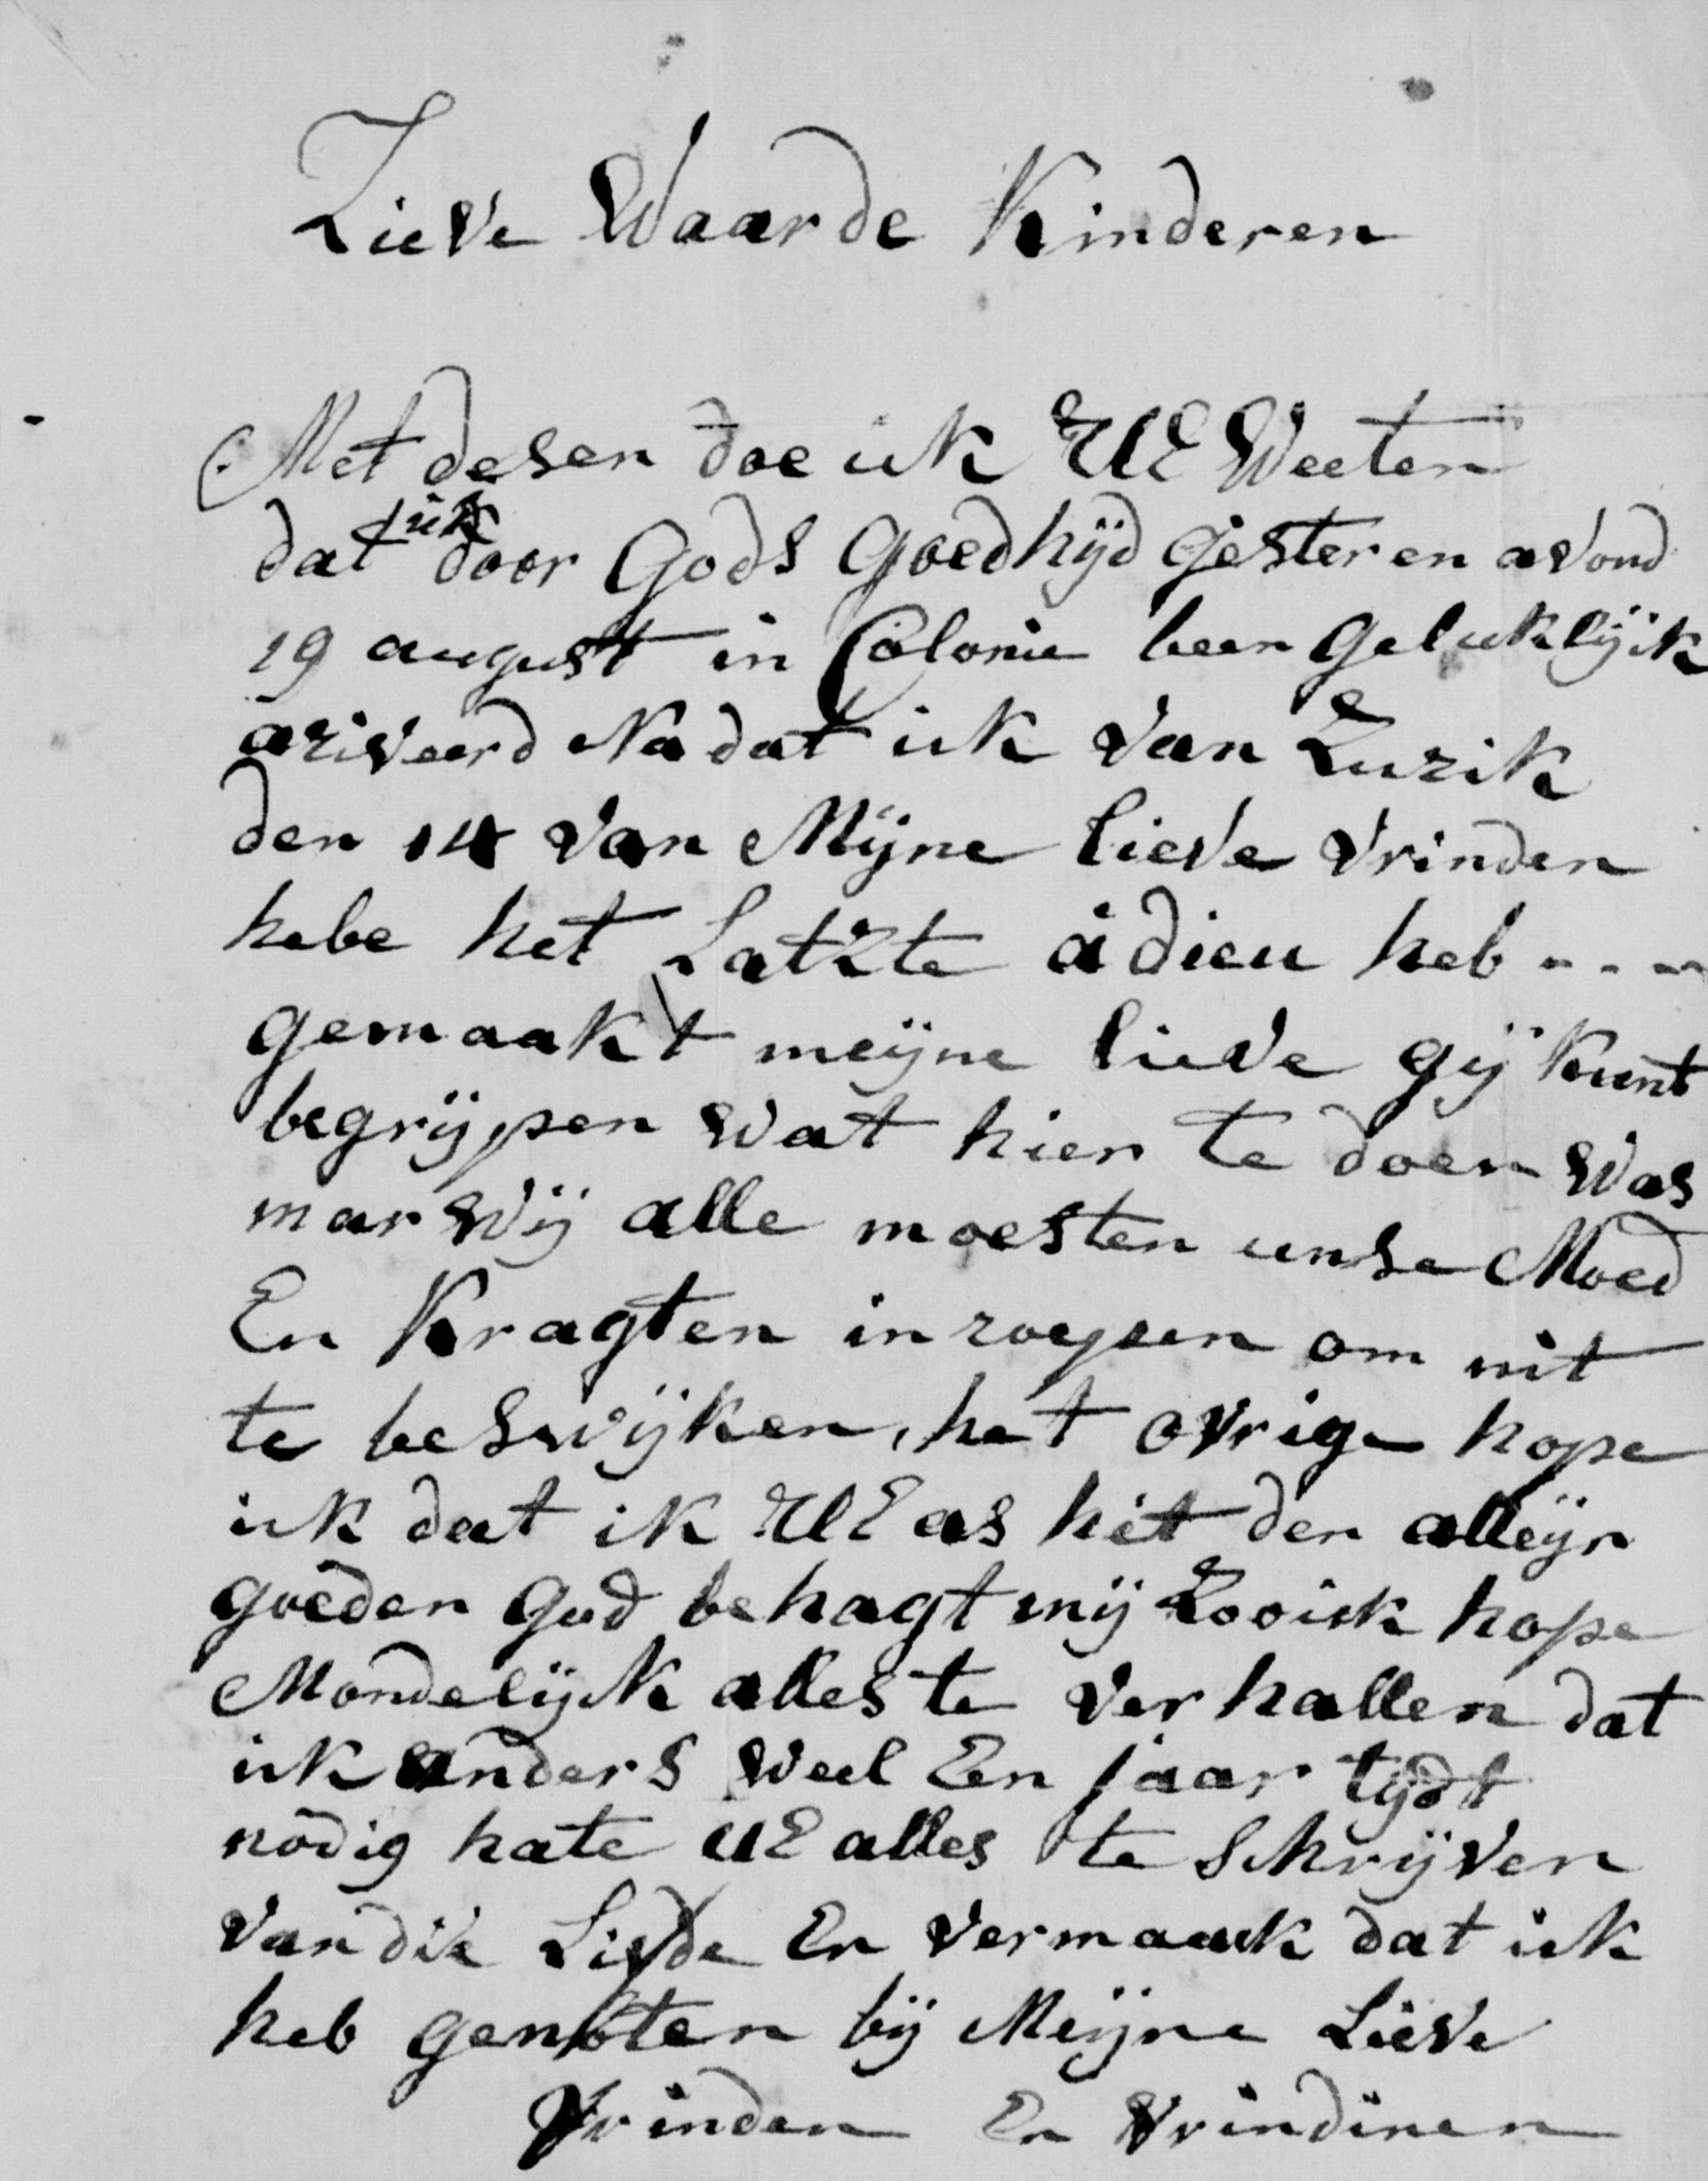 Lieve Waarde Kinderen
Met desen doe ik UE Weeten
dat ik door Gods Goedhÿd gisteren avond
19 august in Colonie been Geluklÿik
ariveerd Na dat ik van Zurik
den 14 van Mÿne lieve vrinden
hebe het Latzte àdieu heb - - -
gemaakt meÿne lieve gÿ kunt
begrÿpen wat hier te doen was
mar wÿ alle moesten unse Moed
En Kragten in roepen om nit
te beswÿken, het ovrige hope
ik dat ik UE as hit den alleÿn
goeden God behagt mÿ Zo ik hope
Mondelÿk alles te verhallen dat
ik anders weel Een jaar tÿdt
nodig hate UE alles te schrÿven
van die Lifde En vermaak dat ik
heb genoten bÿ Meÿne Lieve
Vrinden En Vrindinen